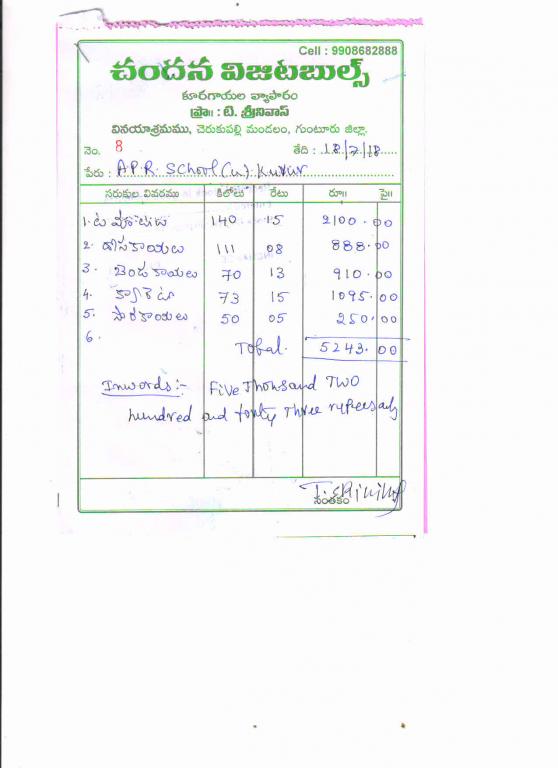 Cell : 9908682888
చందన విజిటబుల్స్
కూరగాయల వ్యాపారం
ప్రొ॥ : టి. శ్రీనివాస్
వినయాశ్రమము, చెరుకుపల్లి మండలం, గుంటూరు జిల్లా.
నెం. 8 తేది : 18/7/18
పేరు : A.P.R. School (u). Kuvur
సరుకుల వివరము కిలోలు రేటు రూ॥ పై॥
1. టమోటాలు 140 15 2100.00
2. దోసకాయలు 111 08 888.00
3. బెండకాయలు 70 13 910.00
4. క్యారెట్ 73 15 1095.00
5. సొరకాయలు 50 05 250.00
6.
Total. 5243.00
Inwords:- Five Thousand Two
hundred and forty Three rupees only
T. Srinivas
సంతకం